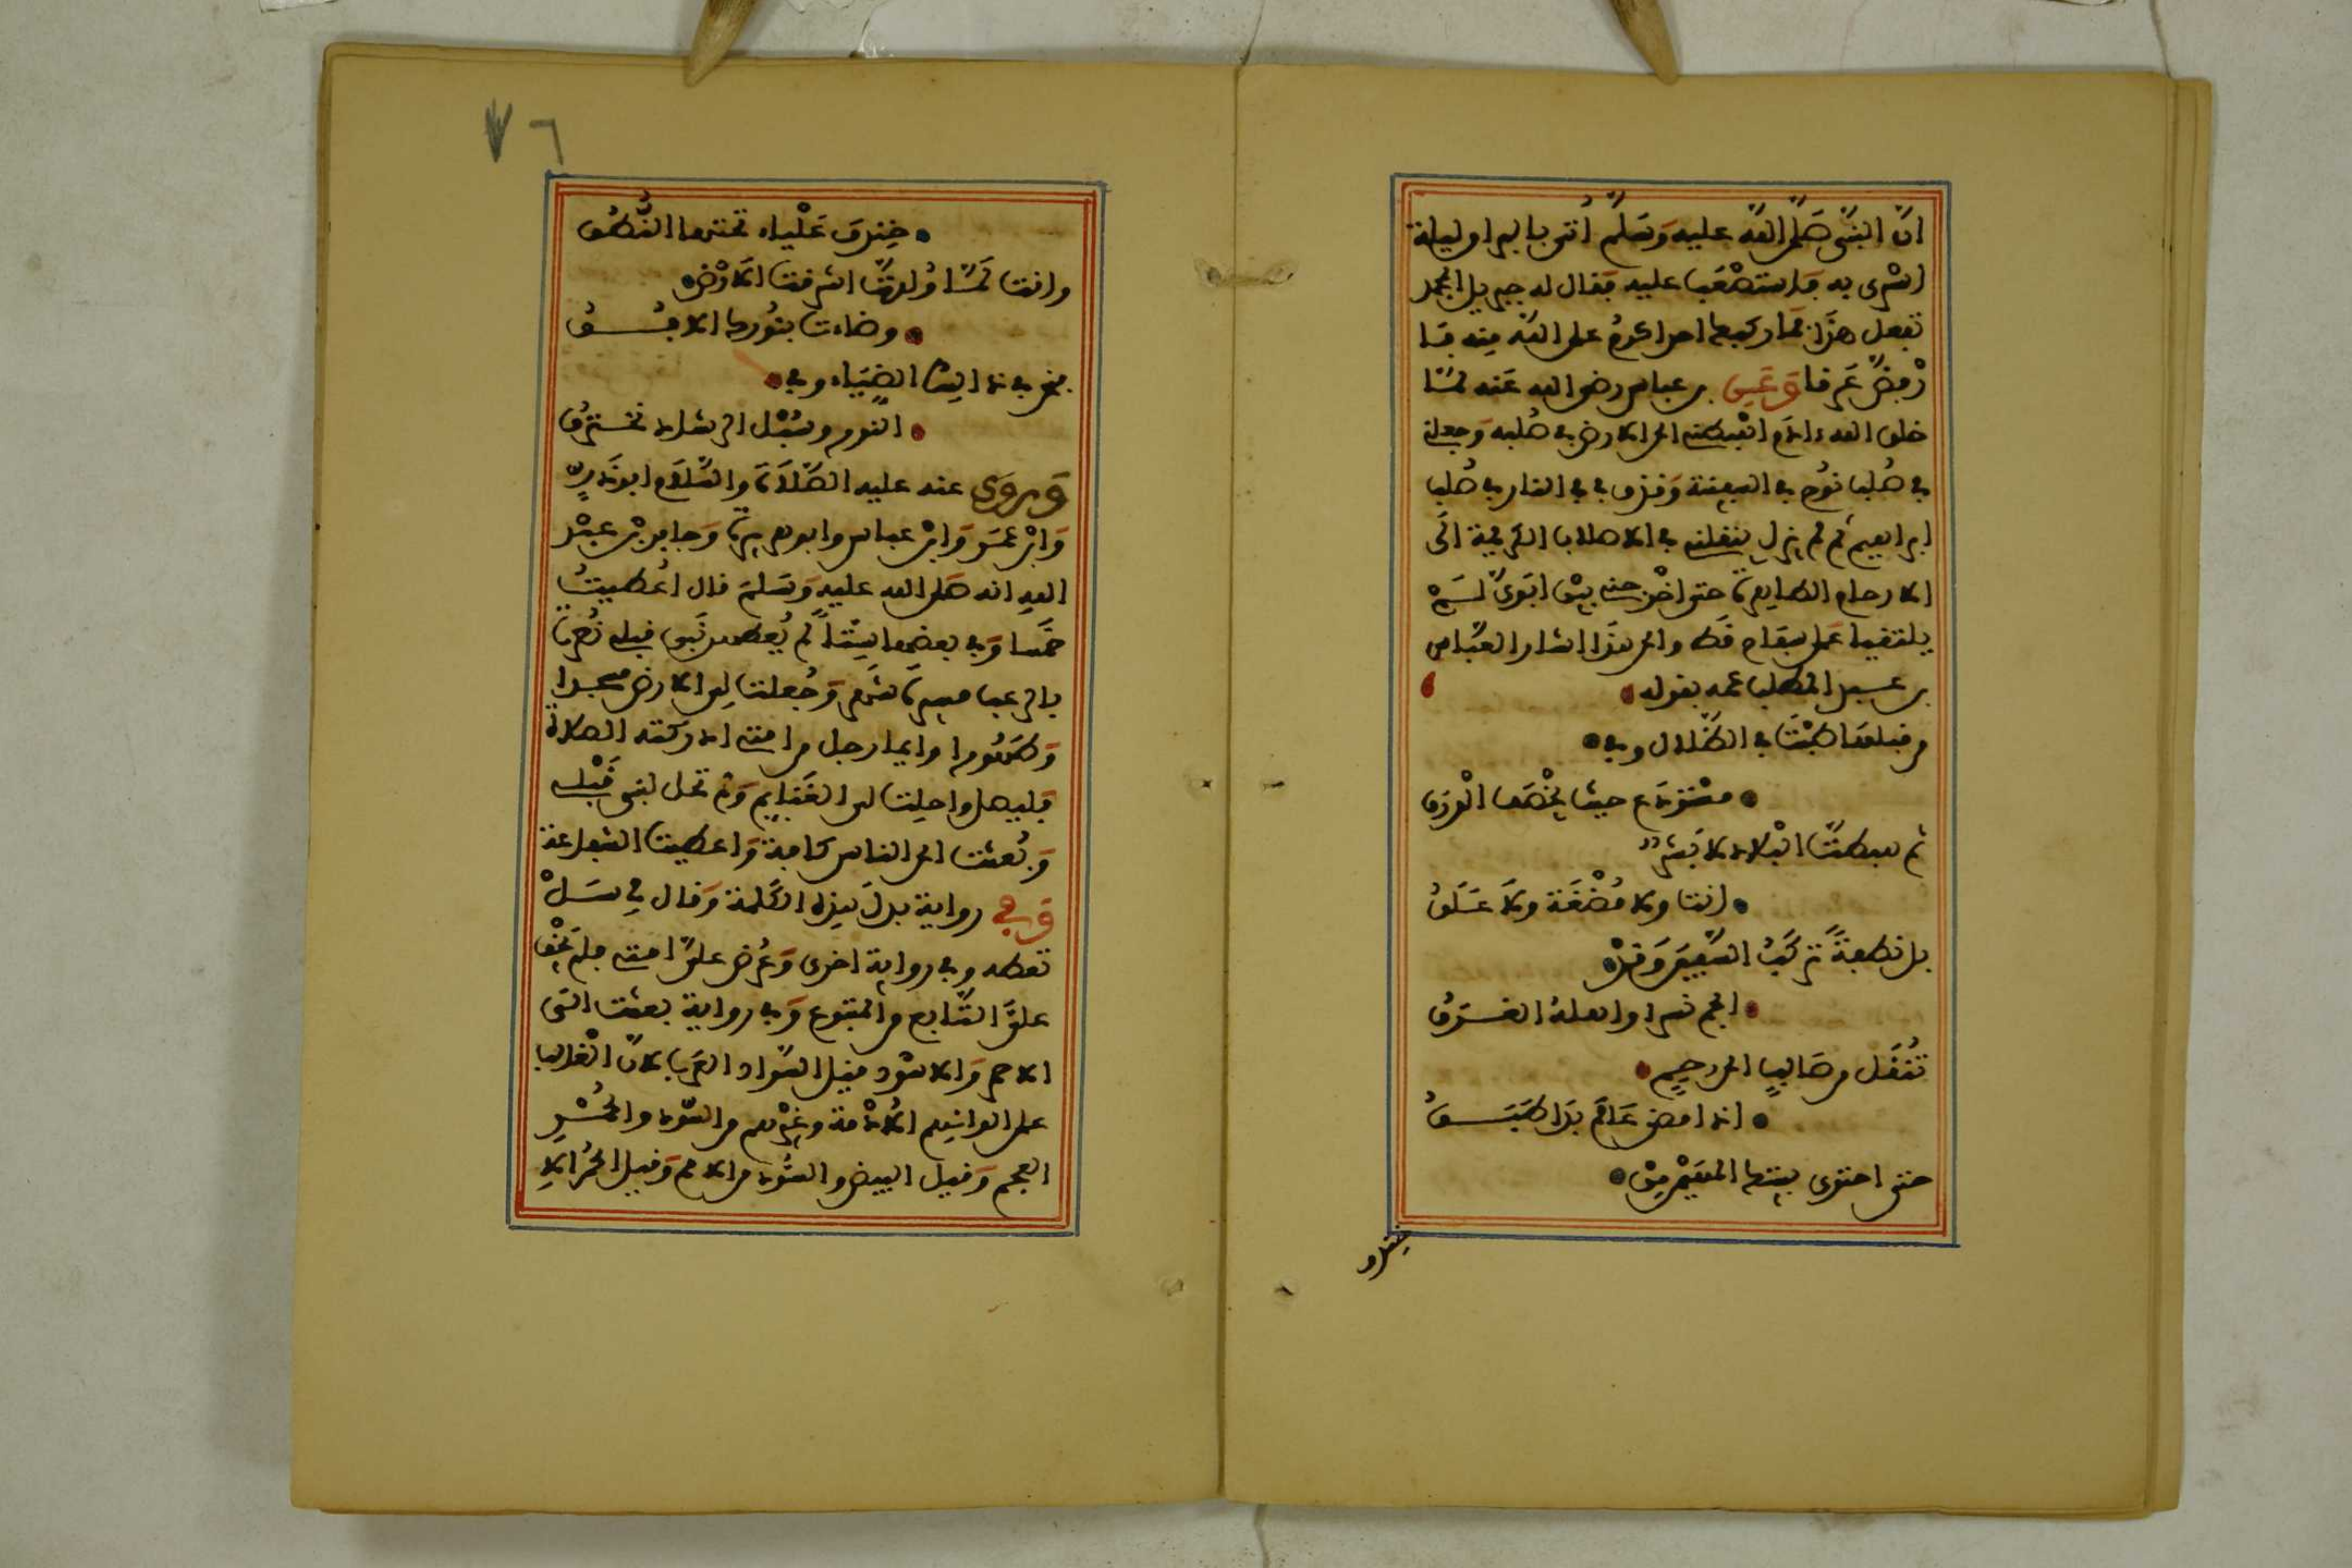 انّ النبىّ صلّى اللّه عليه وَسَلّم أتى بالبراق ليلة
اسْرى به فاستصْعَب عليه فقال له جبريل ابمحمد
تفعل هذا فما ركبها احد اكرمُ على اللّه منه فا
رْفضّ عَرقا وَعَن بن عباس رضى الله عَنه لمّا
خلق الله ءادم اهْبطنى الى الارض فى صُلبه وَجعلنى
فى صُلب نوُح فى السفينة وَقذف بى فى النار فى صُلب
ابراهيم ثم لم يزل ينقلنى فى الاصلاب الكريمة الى
الارحام الطاهرة حتى اخْرجنى بيْن ابَوىّ لَمْ
يلتقيا عَلى سفاح قَط والى هذَا اشار العبّاس
بن عبد المطلب عمه بقوله
من قبلها طبْتَ فى الظّلال وفى
مسْتوْدع حيث يخْصَف الْورَق
ثم هبطتَّ الْبلاد لا بَشر
انت ولا مُضْغَة ولاَ عَلَقُ
بل نطفةً تركَبُ السّفينَ وَقدْ
الجم نسرا واهله الغَرَقُ
تُنْقَل من صَالبٍ الى رحِمٍ
اذا مضى عَالَم بدَا طبَقُ
حتى احتوى بيتك المهَيْمن مِنْ
خندق
٧٦
خِندِفَ عَلْياء تحتها النُّطُقُ
وانت لَمّا وُلدتّ اشرقت الاَرْضُ
وضاءت بنُورك الافُقُ
فنحن فى ذلك الضيَاء وفى
النور وسُبْل الرشاد نخْترقُ
وَروَى عنه عليه الصّلاَة والسّلام ابو ذَرٍّ
وَابْن عمَر وَابْن عباس وابو هريرة وَجابر بْن عبْد
الله انه صَلى الله عليه وَسَلمَ قال اُعْطيتُ
خمسا وَفى بعضها سِتّاً لم يُعْطهن نَبى قبلى نُصِرْتُ
بالرعب مسيرة شهْر وَجُعلت لى الارض مسجدا
وَطَهُورا وايما رجل من امتى ادركته الصلاة
فَليصل واحلت لى الغَنايم وَلم تحل لنبى قَبْلى
وَبُعثت الى الناس كافة وَاعطيت الشفاعة
وَفى رواية بدل هذه الكلمة وَقال لى سَلْ
تعطه وفى رواية اخرى وَعُرض علىّ امتى فلم يخْف
علىّ التّابع من المتبوع وَفى رواية بعثت الى
الاحمر وَالاسْود فقيل السّود العرب لانّ الْغالب
على الوانهم الاُدْمة وغيْرهم من السّود والحُمْر
العجم وَقيل البيض والسُود من الامم وَقيل الحُمْر الانِ